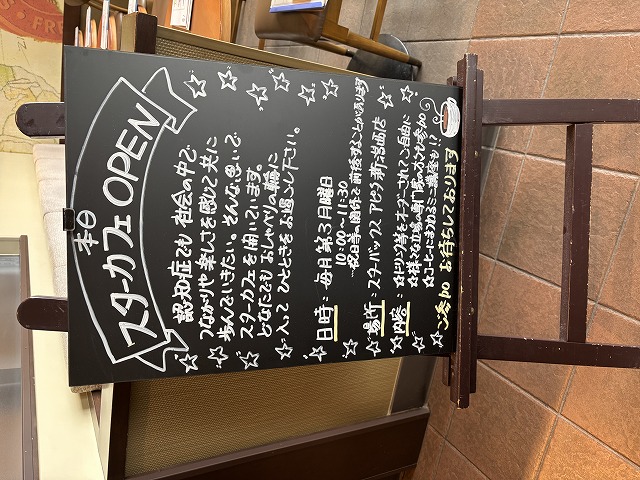 本日
スターカフェ OPEN
認知症でも 社会の中で
つながりや 楽しみを感じて 共に
歩んでいきたい。そんな思いで
スターカフェを 開いています。
どなたでも おしゃべりの輪に
入って ひとときをお過ごし下さい。
日時:毎月第3月曜日
10:00〜11:30
祝日等の関係で 前後することがあります
場所:スターバックス アピタ新潟西店
内容:☆ドリンク等をオーダーされてご自由に
☆様々な立場の専門職の方たちも参加
☆コーヒーにまつわるミニ講座も!?
ご参加 お待ちしております